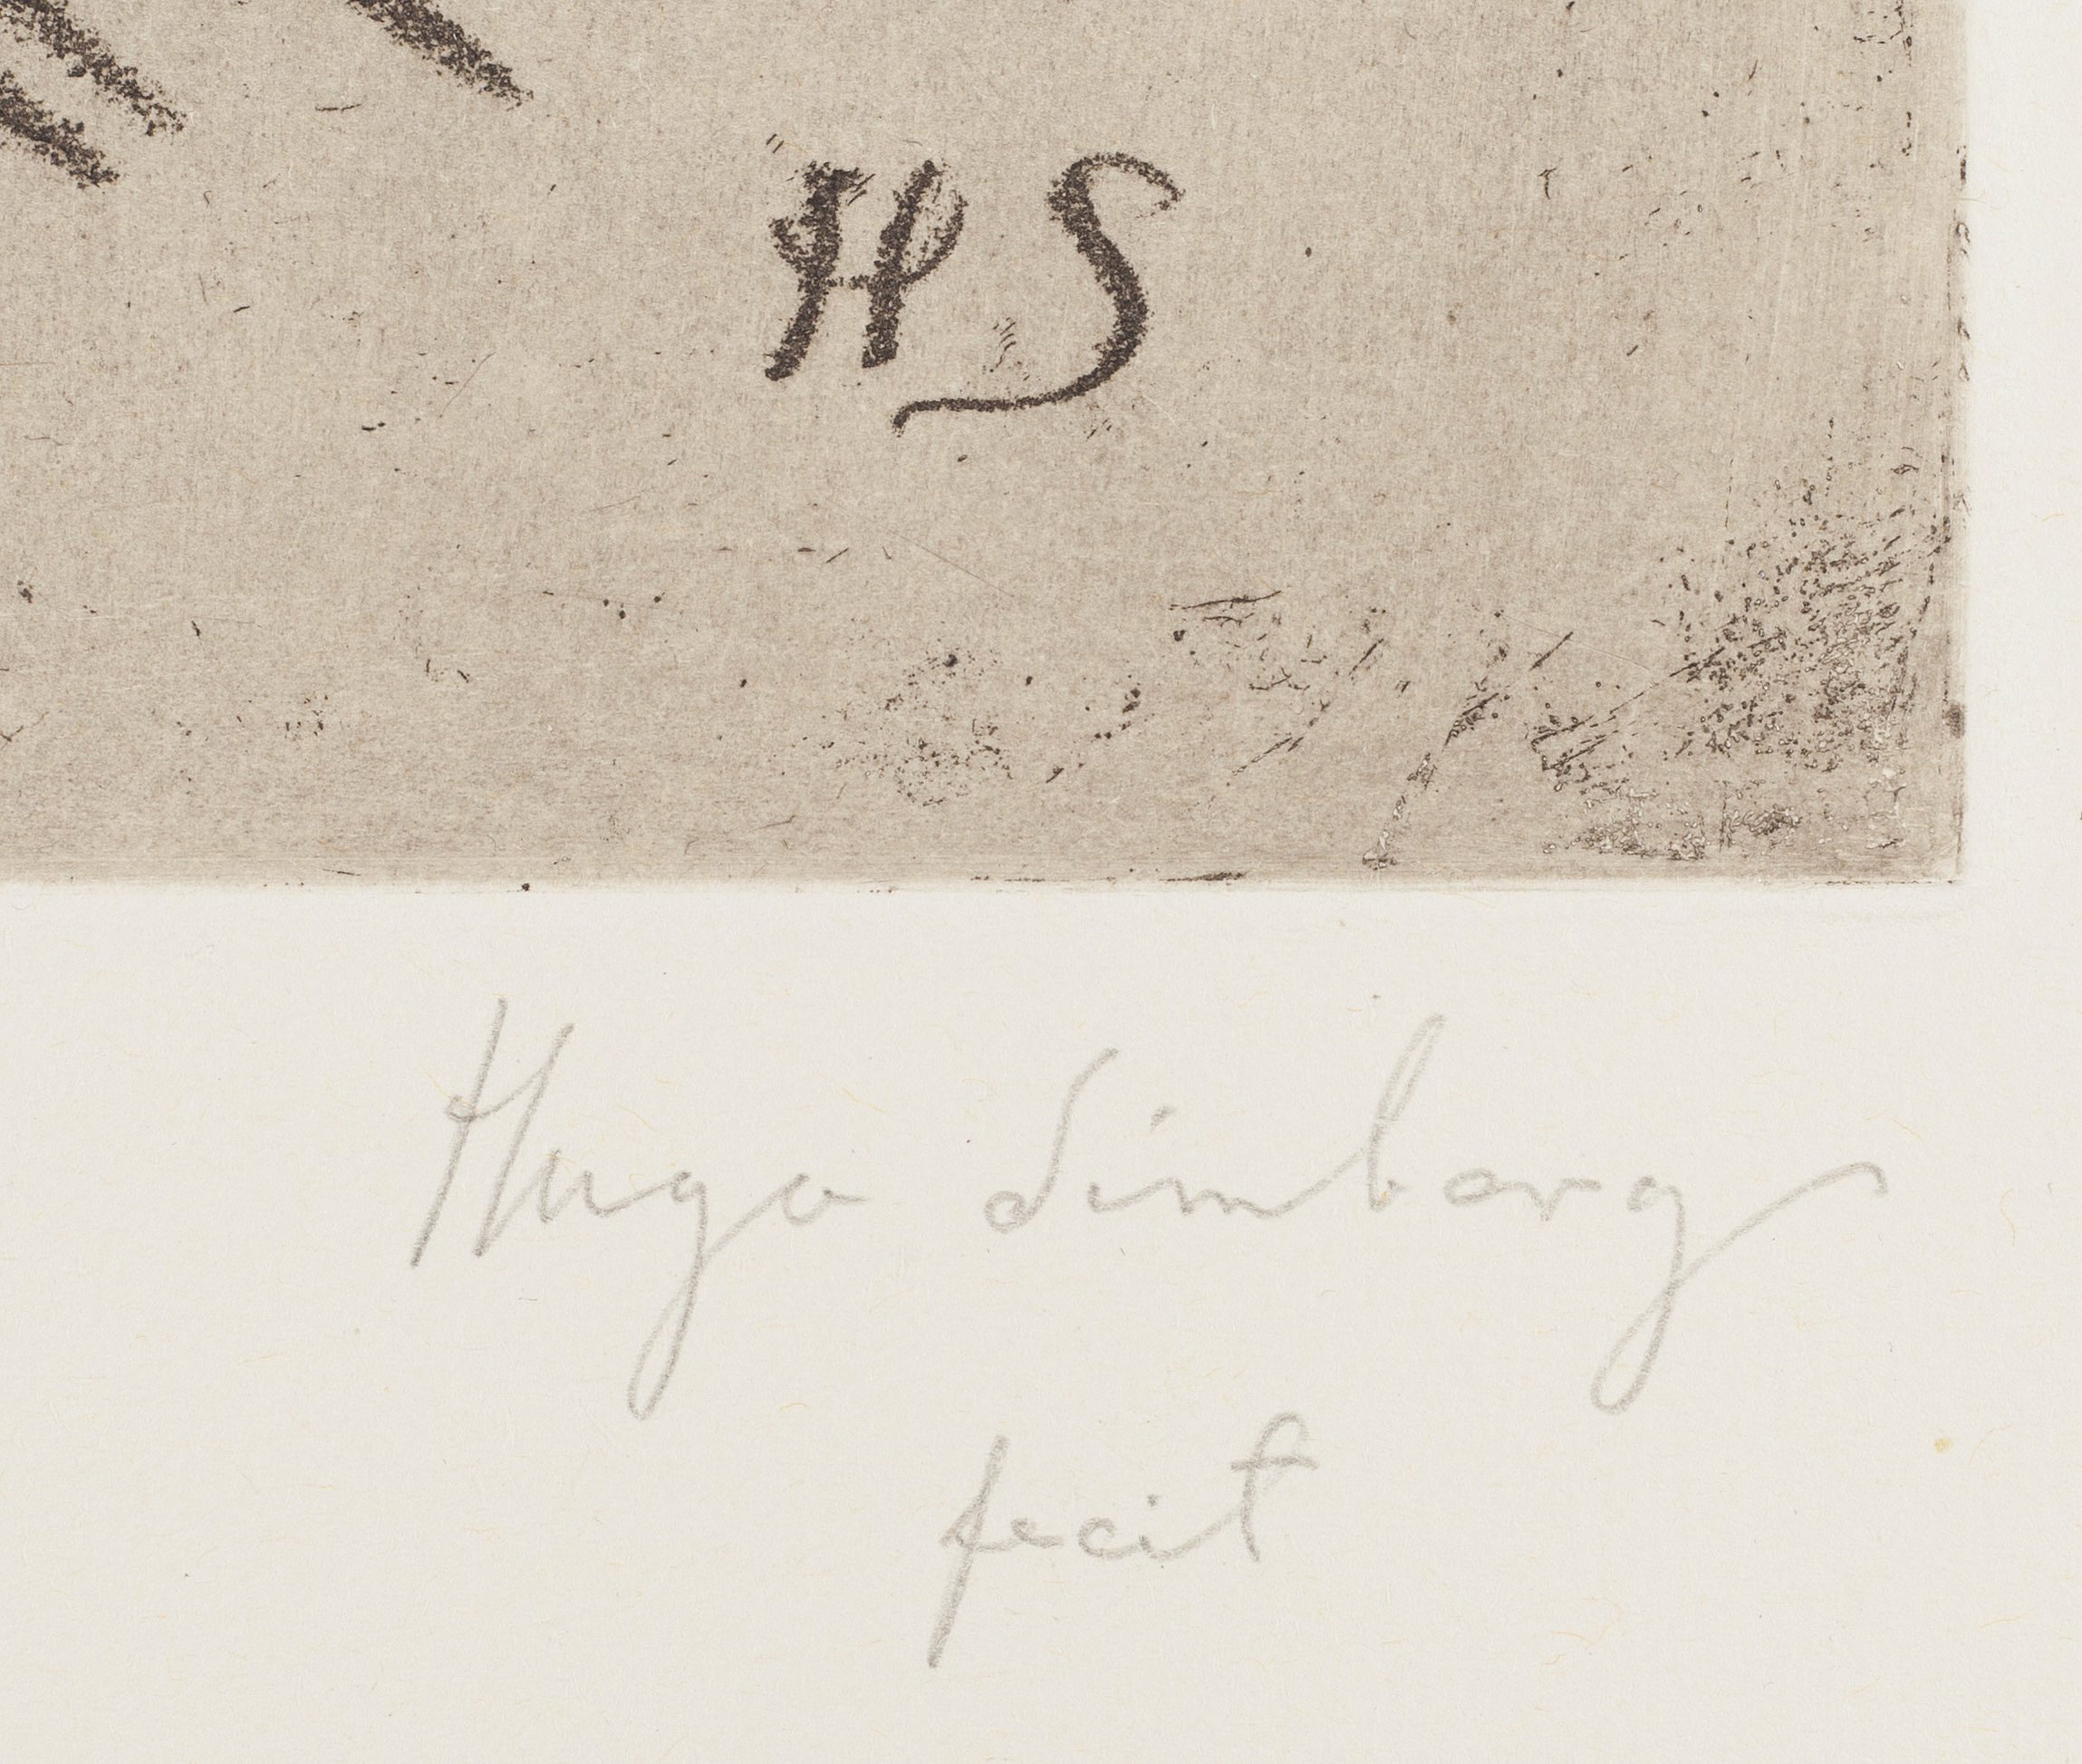 HS
Hugo Simberg
fecit